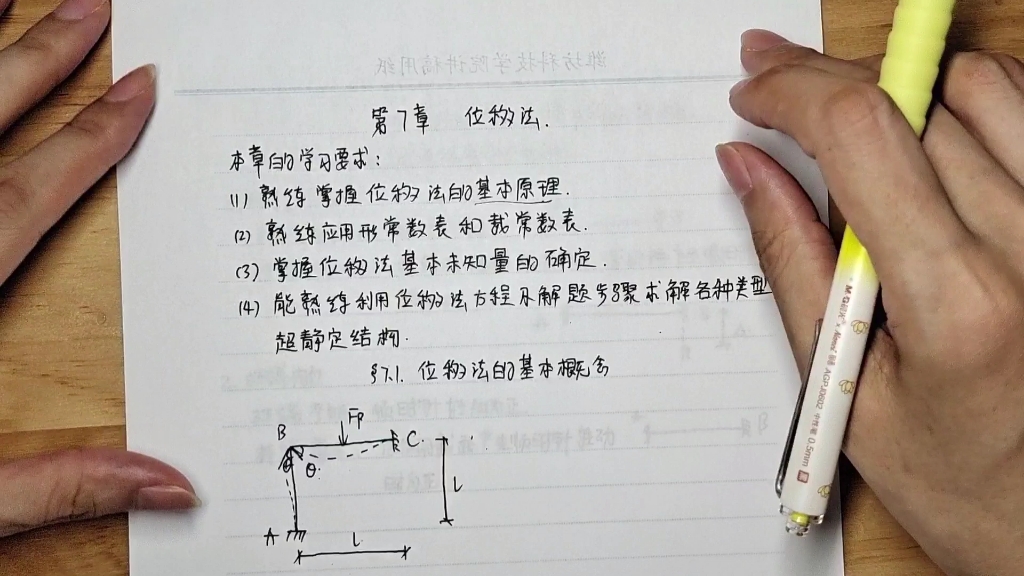 第7章 位移法.
本章的学习要求:
(1) 熟练掌握位移法的基本原理.
(2) 熟练应用形常数表和载常数表.
(3) 掌握位移法基本未知量的确定.
(4) 能熟练利用位移法方程及解题步骤求解各种类型
超静定结构.
§7.1. 位移法的基本概念
FP
B
C.
θ
θ.
L
A
L.
潍坊科技学院讲稿用纸
M&G
AGPJ0602 中性笔 0.5mm